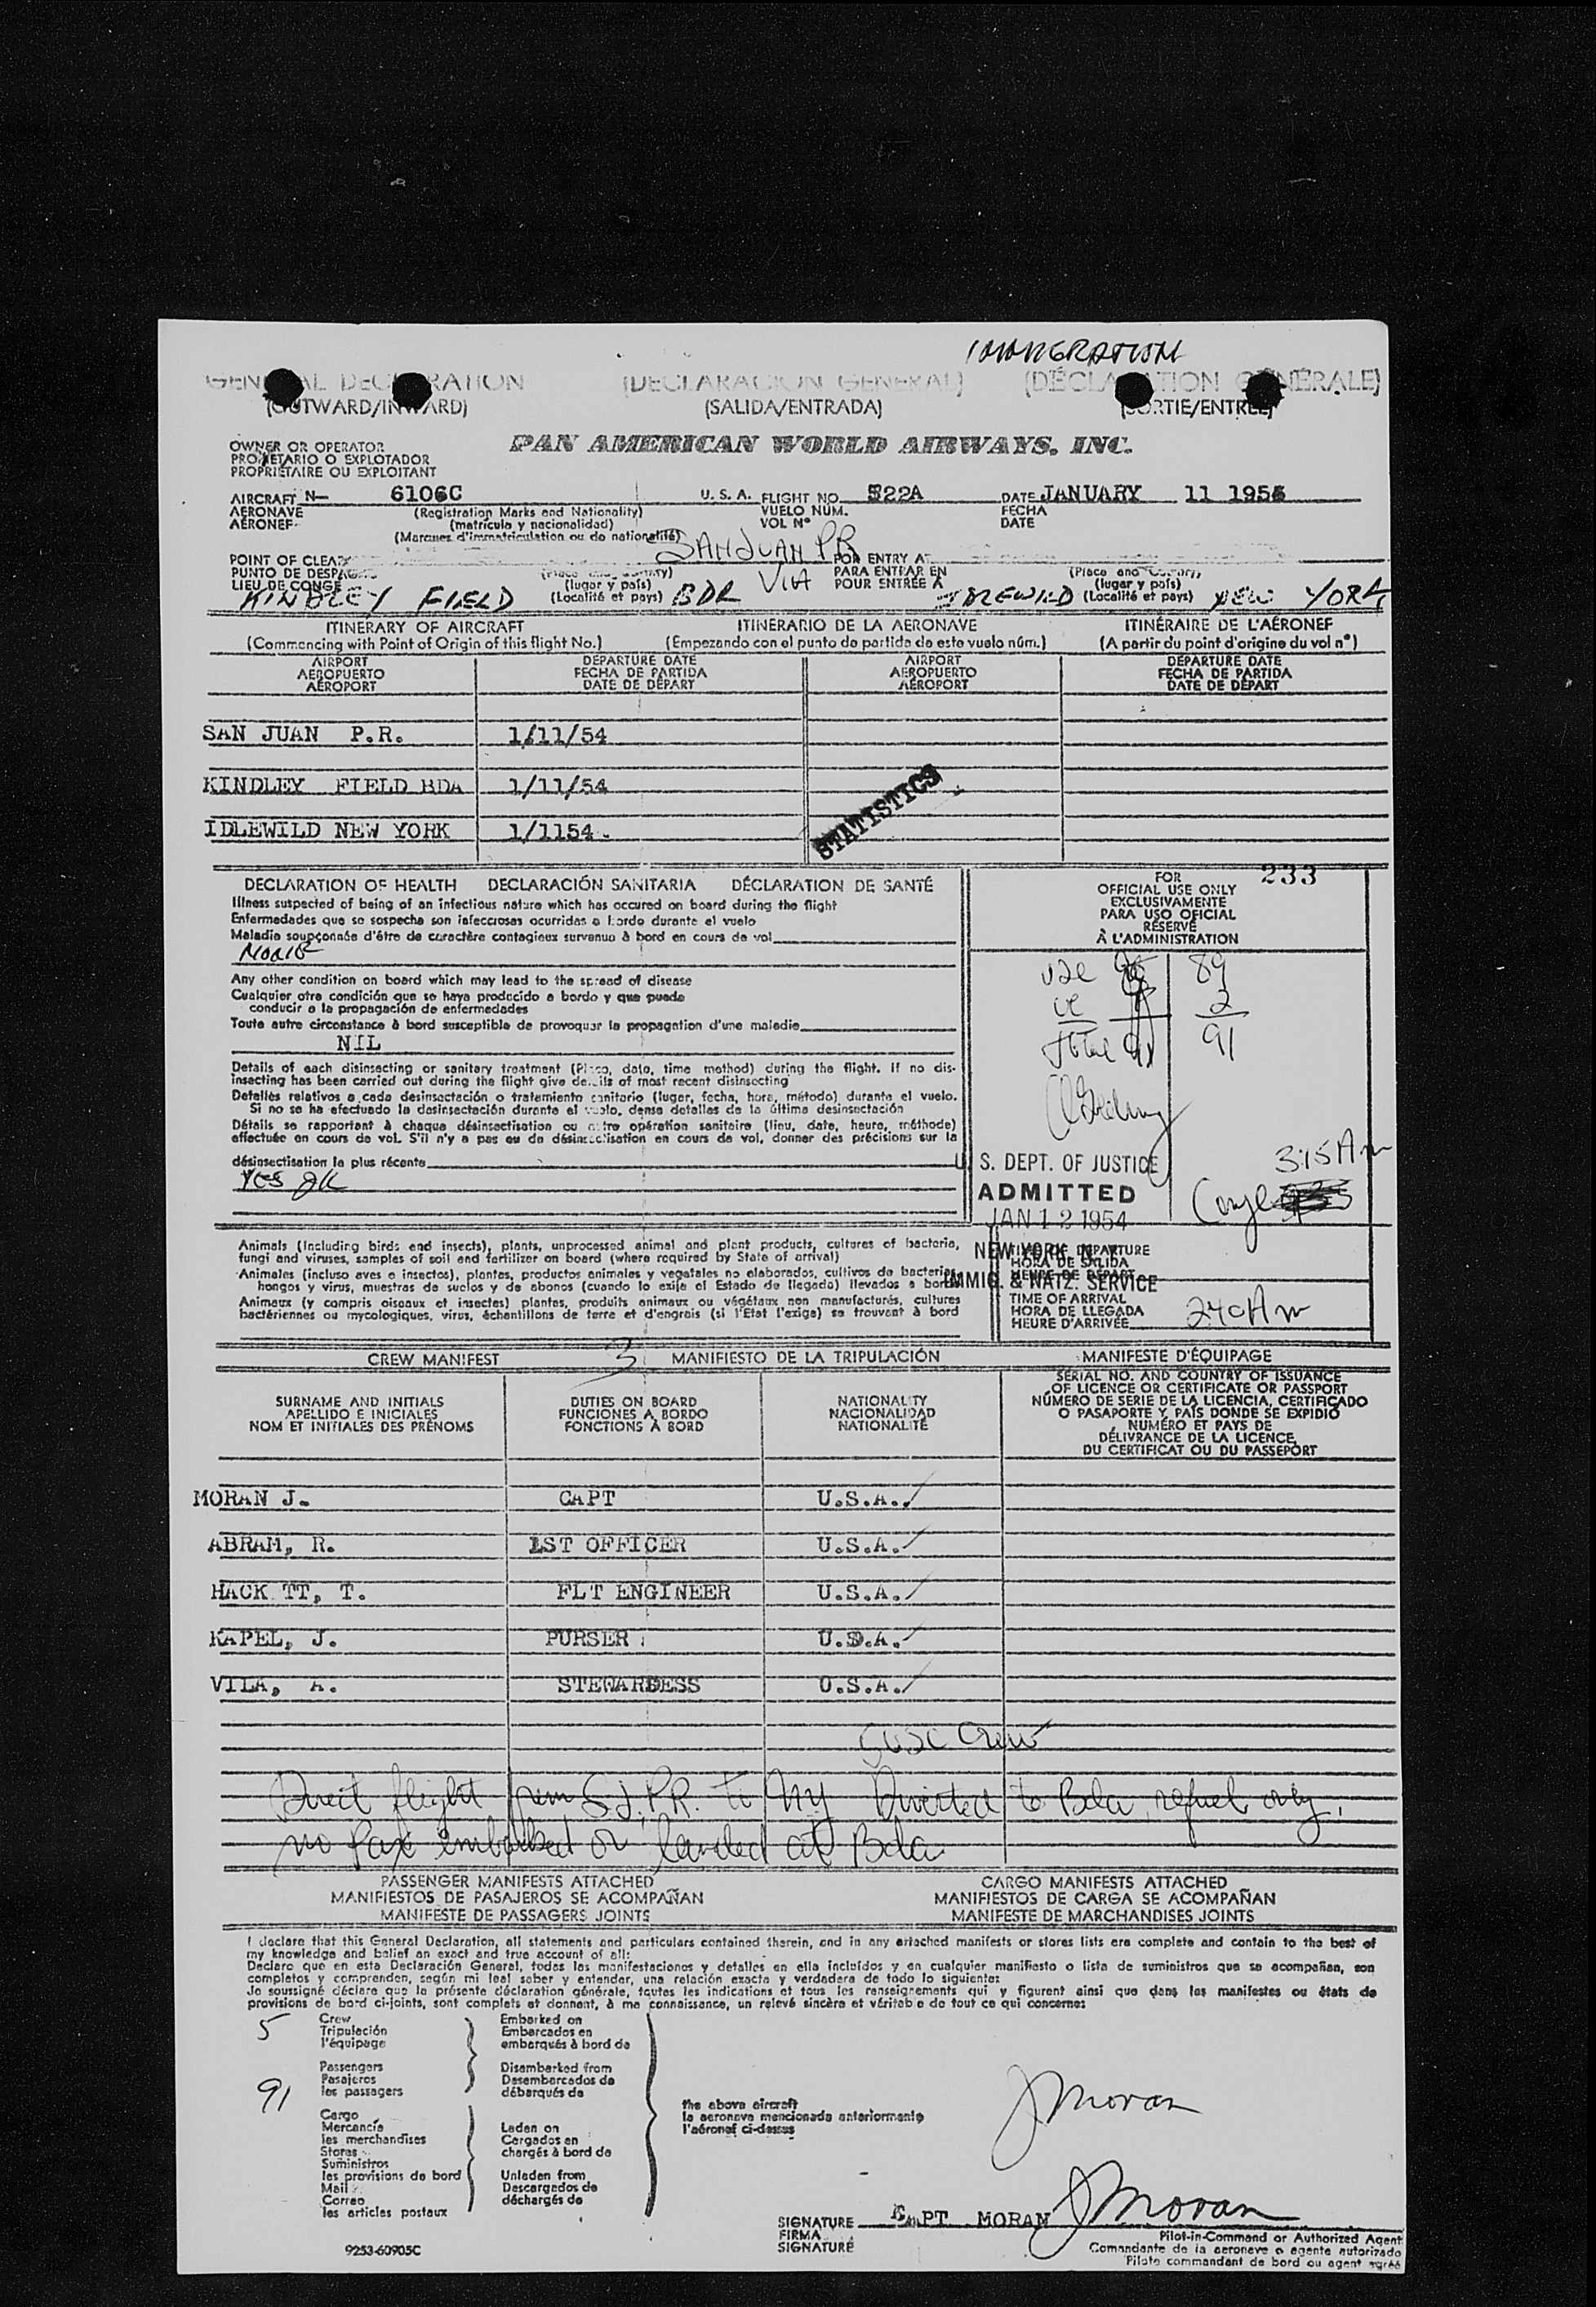 IMMIGRATION
GENERAL DECLARATION (DECLARACION GENERAL) (DÉCLARATION GÉNÉRALE)
(OUTWARD/INWARD) (SALIDA/ENTRADA) (SORTIE/ENTREE)
OWNER OR OPERATOR
PROPIETARIO O EXPLOTADOR
PROPRIÉTAIRE OU EXPLOITANT
PAN AMERICAN WORLD AIRWAYS, INC.
AIRCRAFT N- 6106C U. S. A. FLIGHT NO. 522A DATE JANUARY 11 1954
AERONAVE (Registration Marks and Nationality) VUELO NÚM. FECHA
AÉRONEF (matrícula y nacionalidad) VOL Nº DATE
(Marques d'immatriculation ou de nationalité) SAN JUAN PR
POINT OF CLEAR FOR ENTRY AT
PUNTO DE DESPA (Place and Country) VIA PARA ENTRAR EN (Place and Country)
LIEU DE CONGÉ (lugar y país) POUR ENTRÉE À (lugar y país)
KINDLEY FIELD (Localité et pays) BDR IDLEWILD (Localité et pays) NEW YORK
ITINERARY OF AIRCRAFT ITINERARIO DE LA AERONAVE ITINÉRAIRE DE L'AÉRONEF
(Commencing with Point of Origin of this flight No.) (Empezando con el punto de partida de este vuelo núm.) (A partir du point d'origine du vol nº)
AIRPORT DEPARTURE DATE AIRPORT DEPARTURE DATE
AEROPUERTO FECHA DE PARTIDA AEROPUERTO FECHA DE PARTIDA
AÉROPORT DATE DE DÉPART AÉROPORT DATE DE DÉPART
SAN JUAN P.R. 1/11/54
KINDLEY FIELD BDA 1/11/54
IDLEWILD NEW YORK 1/1154.
STATISTICS
DECLARATION OF HEALTH DECLARACIÓN SANITARIA DÉCLARATION DE SANTÉ
Illness suspected of being of an infectious nature which has occured on board during the flight
Enfermedades que se sospecha son infecciosas ocurridas a bordo durante el vuelo
Maladie soupçonnée d'être de caractère contagieux survenue à bord en cours de vol
NONE
Any other condition on board which may lead to the spread of disease
Cualquier otra condición que se haya producido a bordo y que puede
conducir a la propagación de enfermedades
Toute autre circonstance à bord susceptible de provoquer la propagation d'une maladie
NIL
Details of each disinsecting or sanitary treatment (Place, date, time method) during the flight. If no dis-
insecting has been carried out during the flight give details of most recent disinsecting
Detalles relativos a cada desinsectación o tratamiento sanitario (lugar, fecha, hora, método) durante el vuelo.
Si no se ha efectuado la desinsectación durante el vuelo, dense detalles de la última desinsectación
Détails se rapportant à chaque désinsectisation ou autre opération sanitaire (lieu, date, heure, méthode)
effectuée en cours de vol. S'il n'y a pas eu de désinsectisation en cours de vol, donner des précisions sur la
désinsectisation la plus récente
YES OK
233
FOR
OFFICIAL USE ONLY
EXCLUSIVAMENTE
PARA USO OFICIAL
RÉSERVÉ
À L'ADMINISTRATION
89
2
Total 91 91
3:15 Am
U. S. DEPT. OF JUSTICE
ADMITTED
JAN 12 1954
NEW YORK, N. Y.
IMMIG. & NATZ. SERVICE
Animals (Including birds and insects), plants, unprocessed animal and plant products, cultures of bacteria,
fungi and viruses, samples of soil and fertilizer on board (where required by State of arrival)
Animales (incluso aves e insectos), plantas, productos animales y vegetales no elaborados, cultivos de bacterias,
hongos y virus, muestras de suelos y de abonos (cuando lo exija el Estado de llegada) llevados a bordo
Animaux (y compris oiseaux et insectes) plantes, produits animaux ou végétaux non manufacturés, cultures
bactériennes ou mycologiques, virus, échantillons de terre et d'engrais (si l'Etat l'exige) se trouvant à bord
TIME OF DEPARTURE
HORA DE SALIDA
HEURE DE DÉPART
TIME OF ARRIVAL
HORA DE LLEGADA
HEURE D'ARRIVÉE 240 Am
CREW MANIFEST 3 MANIFIESTO DE LA TRIPULACIÓN MANIFESTE D'ÉQUIPAGE
SURNAME AND INITIALS
APELLIDO E INICIALES
NOM ET INITIALES DES PRÉNOMS
DUTIES ON BOARD
FUNCIONES A BORDO
FONCTIONS À BORD
NATIONALITY
NACIONALIDAD
NATIONALITÉ
SERIAL NO. AND COUNTRY OF ISSUANCE
OF LICENCE OR CERTIFICATE OR PASSPORT
NÚMERO DE SERIE DE LA LICENCIA, CERTIFICADO
O PASAPORTE Y PAÍS DONDE SE EXPIDIÓ
NUMÉRO ET PAYS DE
DÉLIVRANCE DE LA LICENCE
DU CERTIFICAT OU DU PASSEPORT
MORAN J. CAPT U.S.A.
ABRAM, R. 1ST OFFICER U.S.A.
HACK TT, T. FLT ENGINEER U.S.A.
KAPEL, J. PURSER U.S.A.
VILA, A. STEWARDESS U.S.A.
5 USC Crew
Direct flight from S.J. P.R. to NY Diverted to Bda, refuel only,
no Pax embarked or landed at Bda.
PASSENGER MANIFESTS ATTACHED CARGO MANIFESTS ATTACHED
MANIFIESTOS DE PASAJEROS SE ACOMPAÑAN MANIFIESTOS DE CARGA SE ACOMPAÑAN
MANIFESTE DE PASSAGERS JOINTS MANIFESTE DE MARCHANDISES JOINTS
I declare that this General Declaration, all statements and particulars contained therein, and in any attached manifests or stores lists are complete and contain to the best of
my knowledge and belief an exact and true account of all:
Declaro que en esta Declaración General, todas las manifestaciones y detalles en ella incluídos y en cualquier manifiesto o lista de suministros que se acompañan, son
completos y comprenden, según mi leal saber y entender, una relación exacta y verdadera de todo lo siguiente:
Je soussigné déclare que la présente déclaration générale, toutes les indications et tous les renseignements qui y figurent ainsi que dans les manifestes ou états de
provisions de bord ci-joints, sont complets et donnent, à ma connaissance, un relevé sincère et véritable de tout ce qui concerne:
5 Crew
Tripulación
l'équipage
Embarked on
Embarcados en
embarqués à bord de
91 Passengers
Pasajeros
les passagers
Disembarked from
Desembarcados de
débarqués de
Cargo
Mercancía
les merchandises
Stores
Suministros
les provisions de bord
Mail
Correo
les articles postaux
Laden on
Cargados en
chargés à bord de
Unladen from
Descargados de
déchargés de
the above aircraft
la aeronave mencionada anteriormente
l'aéronef ci-dessus
J Moran
SIGNATURE CAPT MORAN J Moran
FIRMA
SIGNATURE
Pilot-in-Command or Authorized Agent
Comandante de la aeronave o agente autorizado
Pilote commandant de bord ou agent agréé
9253-60905C